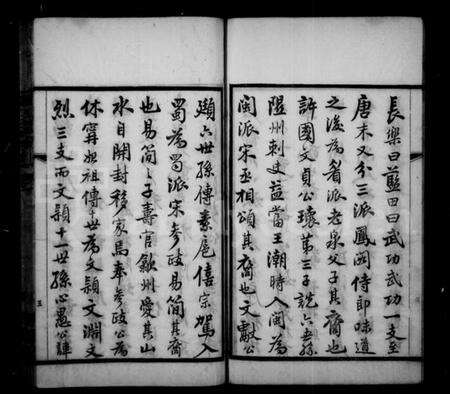 長樂曰藍田曰武功武功一支至
唐末又分三派鳳閣侍郎味道
之後為眉派老泉父子其裔也
許國文貞公瓌第三子說六世孫
隰州刺史益當王潮時入閩為
閩派宋丞相頌其裔也文獻公
頲六世孫傳素扈僖宗駕入
蜀為蜀派宋參政易簡其裔
也易簡之子壽官歙州愛其山
水自開封移家焉奉參政公為
休寗始祖傳十世為文頴文淵文
烈三支而文頴十一世孫心愚公諱
五